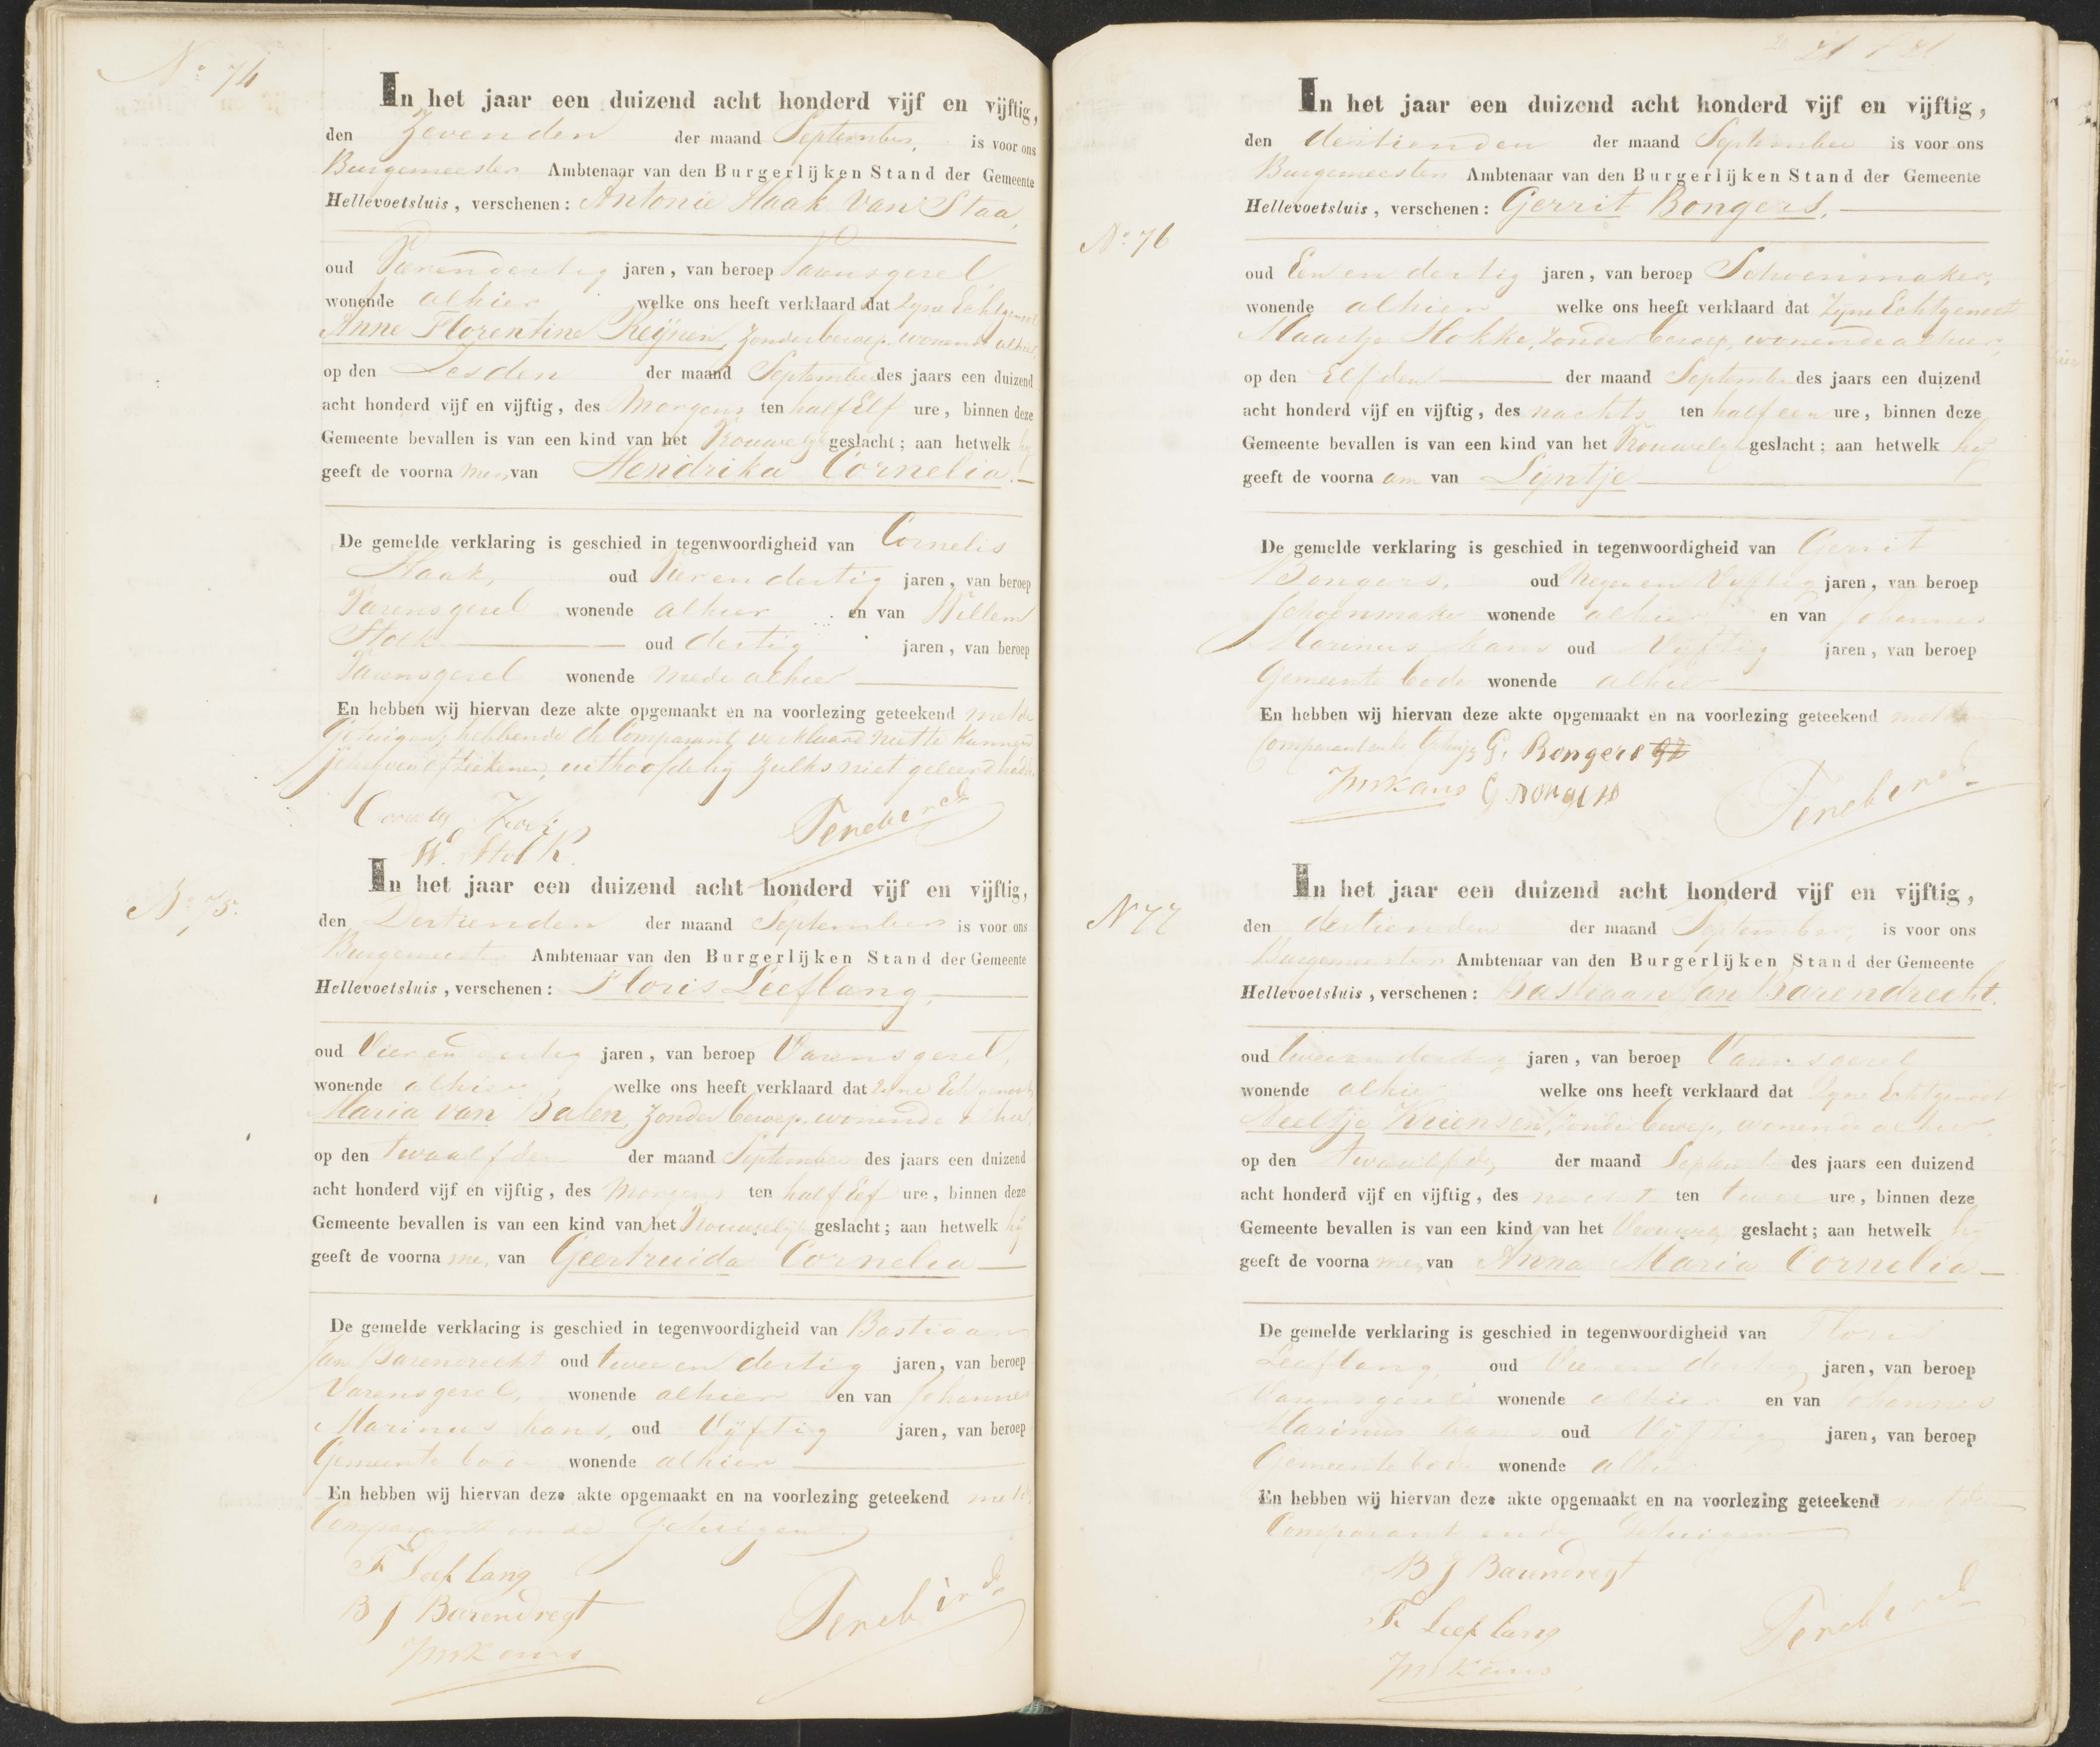 No 74
In het jaar een duizend acht honderd vijf en vijftig,
den Zevenden der maand September, is voor ons
Burgemeester Ambtenaar van den Burgerlijken Stand der Gemeente
Hellevoetsluis, verschenen: Antonie Haak van Staa,
oud jaren, van beroep Varensgezel
wonende alhier welke ons heeft verklaard dat zijne Echtgenoot
Anne Florentine Reijnen, zonder beroep, wonende alhier,
op den Zesden der maand September des jaars een duizend
acht honderd vijf en vijftig, des Morgens ten half Elf ure, binnen deze
Gemeente bevallen is van een kind van het Vrouwelijk geslacht; aan hetwelk hij
geeft de voorna men, van Hendrika Cornelia.
De gemelde verklaring is geschied in tegenwoordigheid van Cornelis
Haak, oud Vier en dertig jaren, van beroep
Varensgezel wonende alhier en van Willem
Stolk oud dertig jaren, van beroep
Varensgezel wonende mede alhier
En hebben wij hiervan deze akte opgemaakt en na voorlezing geteekend met de
Getuigen, hebbende de Comparant verklaard niet te kunnen
schrijven of teekenen, uithoofde hij zulks niet geleerd heeft
W. Stolk
No 75.
In het jaar een duizend acht honderd vijf en vijftig,
den Dertienden der maand September is voor ons
Burgemeester Ambtenaar van den Burgerlijken Stand der Gemeente
Hellevoetsluis, verschenen: Floris Leeflang,
oud Vier en dertig jaren, van beroep Varensgezel,
wonende alhier welke ons heeft verklaard dat zijne Echtgenoot
Maria van Balen, zonder beroep, wonende alhier,
op den twaalfden der maand September des jaars een duizend
acht honderd vijf en vijftig, des Morgens ten half Elf ure, binnen deze
Gemeente bevallen is van een kind van het Vrouwelijk geslacht; aan hetwelk hij
geeft de voorna men, van Geertruida Cornelia
De gemelde verklaring is geschied in tegenwoordigheid van Bastiaan
Jan Barendrecht oud twee en dertig jaren, van beroep
Varensgezel, wonende alhier en van Johannes
Marinus Kans, oud Vijftig jaren, van beroep
Gemeente bode wonende alhier
En hebben wij hiervan deze akte opgemaakt en na voorlezing geteekend met de
Comparant en de Getuigen
F Leeflang
B J Barendregt
JMKans
In het jaar een duizend acht honderd vijf en vijftig,
den dertienden der maand September is voor ons
Burgemeester Ambtenaar van den Burgerlijken Stand der Gemeente
Hellevoetsluis, verschenen: Gerrit Bongers,
No 76
oud Een en dertig jaren, van beroep Schoenmaker,
wonende alhier welke ons heeft verklaard dat zijne Echtgenoot
Maartje Hokke, zonder beroep, wonende alhier,
op den Elfden der maand September des jaars een duizend
acht honderd vijf en vijftig, des nachts ten half een ure, binnen deze
Gemeente bevallen is van een kind van het Vrouwelijk geslacht; aan hetwelk hij
geeft de voorna am van Lijntje
De gemelde verklaring is geschied in tegenwoordigheid van Gerrit
Bongers, oud Negen en Vijftig jaren, van beroep
Schoenmaker wonende alhier en van Johannes
Marinus Kans oud Vijftig jaren, van beroep
Gemeente bode wonende alhier
En hebben wij hiervan deze akte opgemaakt en na voorlezing geteekend met de
Comparant en de Getuig G. Bongers
JMKans G Bongers
No 77
In het jaar een duizend acht honderd vijf en vijftig,
den dertienden der maand September, is voor ons
Burgemeester Ambtenaar van den Burgerlijken Stand der Gemeente
Hellevoetsluis, verschenen: Bastiaan Jan Barendrecht.
oud twee en dertig jaren, van beroep Varensgezel
wonende alhier welke ons heeft verklaard dat zijne Echtgenoot
Neeltje zonder beroep, wonende alhier,
op den twaalfden der maand September des jaars een duizend
acht honderd vijf en vijftig, des nachts ten twee ure, binnen deze
Gemeente bevallen is van een kind van het geslacht; aan hetwelk hij
geeft de voorna men, van Anna Maria Cornelia
De gemelde verklaring is geschied in tegenwoordigheid van Floris
Leeflang, oud Vier en dertig jaren, van beroep
Varensgezel wonende alhier en van Johannes
Marinus Kans oud Vijftig jaren, van beroep
Gemeente bode wonende alhier
En hebben wij hiervan deze akte opgemaakt en na voorlezing geteekend met de
Comparant en de Getuigen
B J Barendregt
F Leeflang
JMKans